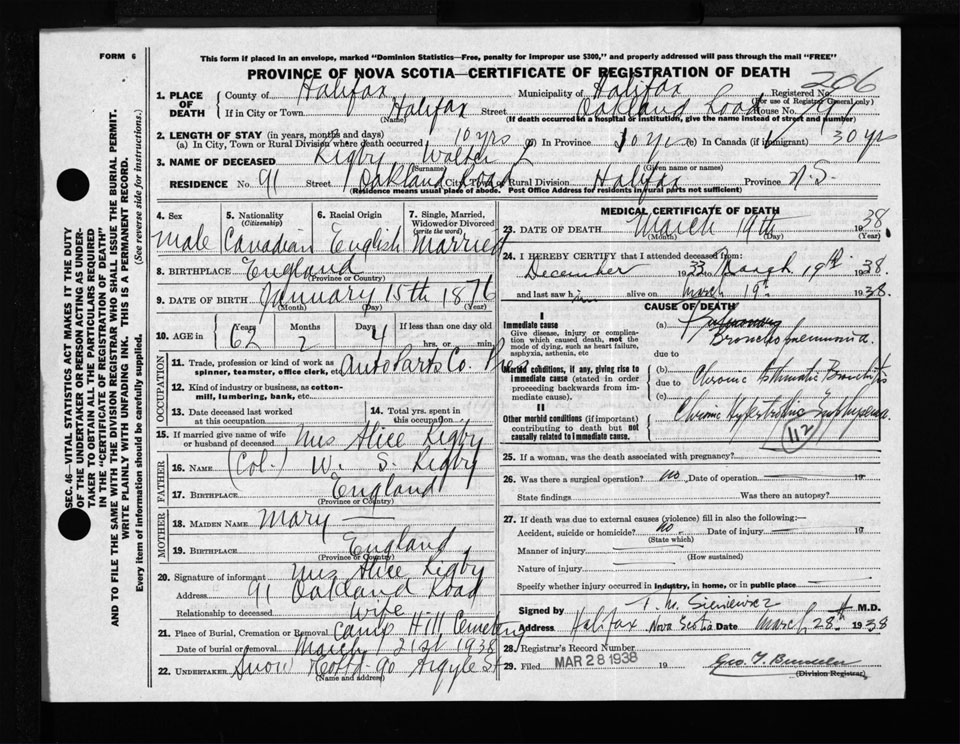 FORM 6
This form if placed in an envelope, marked "Dominion Statistics—Free, penalty for improper use $300," and properly addressed will pass through the mail "FREE"
PROVINCE OF NOVA SCOTIA—CERTIFICATE OF REGISTRATION OF DEATH
206
1. PLACE OF DEATH County of Halifax Municipality of Halifax Registered No.
(For use of Registrar General only)
If in City or Town Halifax Street Oakland Road House No. 91
(Name) (If death occurred in a hospital or institution, give the name instead of street and number)
2. LENGTH OF STAY (in years, months and days)
(a) In City, Town or Rural Division where death occurred 10 yrs (b) In Province 10 yrs (c) In Canada (if immigrant) 30 yrs
3. NAME OF DECEASED Rigby Walter L
(Surname) (Given name or names)
RESIDENCE No. 91 Street Oakland Road City, Town or Rural Division Halifax Province N.S.
(Residence means usual place of abode. Post Office Address for residents in rural parts not sufficient)
4. Sex Male
5. Nationality (Citizenship) Canadian
6. Racial Origin English
7. Single, Married, Widowed or Divorced (write the word) Married
8. BIRTHPLACE England
(Province or Country)
9. DATE OF BIRTH January 15th 1876
(Month) (Day) (Year)
10. AGE in Years 62 Months 2 Days 4 If less than one day old hrs. or min.
OCCUPATION
11. Trade, profession or kind of work as spinner, teamster, office clerk, etc. Auto Parts Co. Pres
12. Kind of industry or business, as cotton-mill, lumbering, bank, etc.
13. Date deceased last worked at this occupation
14. Total yrs. spent in this occupation
15. If married give name of wife or husband of deceased Mrs Alice Rigby
FATHER
16. NAME (Col.) W. S. Rigby
17. BIRTHPLACE England
(Province or Country)
MOTHER
18. MAIDEN NAME Mary —
19. BIRTHPLACE England
(Province or Country)
20. Signature of informant Mrs Alice Rigby
Address 91 Oakland Road
Relationship to deceased Wife
21. Place of Burial, Cremation or Removal Camp Hill Cemetery
Date of burial or removal March 21st 1938
22. UNDERTAKER Snow & Co Ltd - 90 Argyle St
(Name and address)
MEDICAL CERTIFICATE OF DEATH
23. DATE OF DEATH March 19th 1938.
(Month) (Day) (Year)
24. I HEREBY CERTIFY that I attended deceased from:
December 1933 to March 19th 1938.
and last saw him alive on March 19th 1938.
CAUSE OF DEATH
I
Immediate cause
Give disease, injury or complication which caused death, not the mode of dying, such as heart failure, asphyxia, asthenia, etc
(a) Bronchopneumonia.
due to
Morbid conditions, if any, giving rise to immediate cause (stated in order proceeding backwards from immediate cause).
(b)
due to Chronic Asthmatic Bronchitis
(c)
II
Other morbid conditions (if important) contributing to death but not causally related to immediate cause.
Chronic Hypertrophic Emphysema
112
25. If a woman, was the death associated with pregnancy?
26. Was there a surgical operation? no Date of operation — 19
State findings Was there an autopsy?
27. If death was due to external causes (violence) fill in also the following:—
Accident, suicide or homicide? no. Date of injury — 19
(State which)
Manner of injury —
(How sustained)
Nature of injury —
Specify whether injury occurred in industry, in home, or in public place —
Signed by T. M. Sieniewicz M.D.
Address Halifax Nova Scotia Date March 28th 1938
28. Registrar's Record Number
29. Filed MAR 28 1938 19 Geo. T.
(Division Registrar)
SEC. 46—VITAL STATISTICS ACT MAKES IT THE DUTY
OF THE UNDERTAKER OR PERSON ACTING AS UNDER-
TAKER TO OBTAIN ALL THE PARTICULARS REQUIRED
IN THE "CERTIFICATE OF REGISTRATION OF DEATH"
AND TO FILE THE SAME WITH THE DIVISION REGISTRAR WHO SHALL ISSUE THE BURIAL PERMIT.
WRITE PLAINLY WITH UNFADING INK. THIS IS A PERMANENT RECORD.
Every item of information should be carefully supplied. (See reverse side for instructions.)